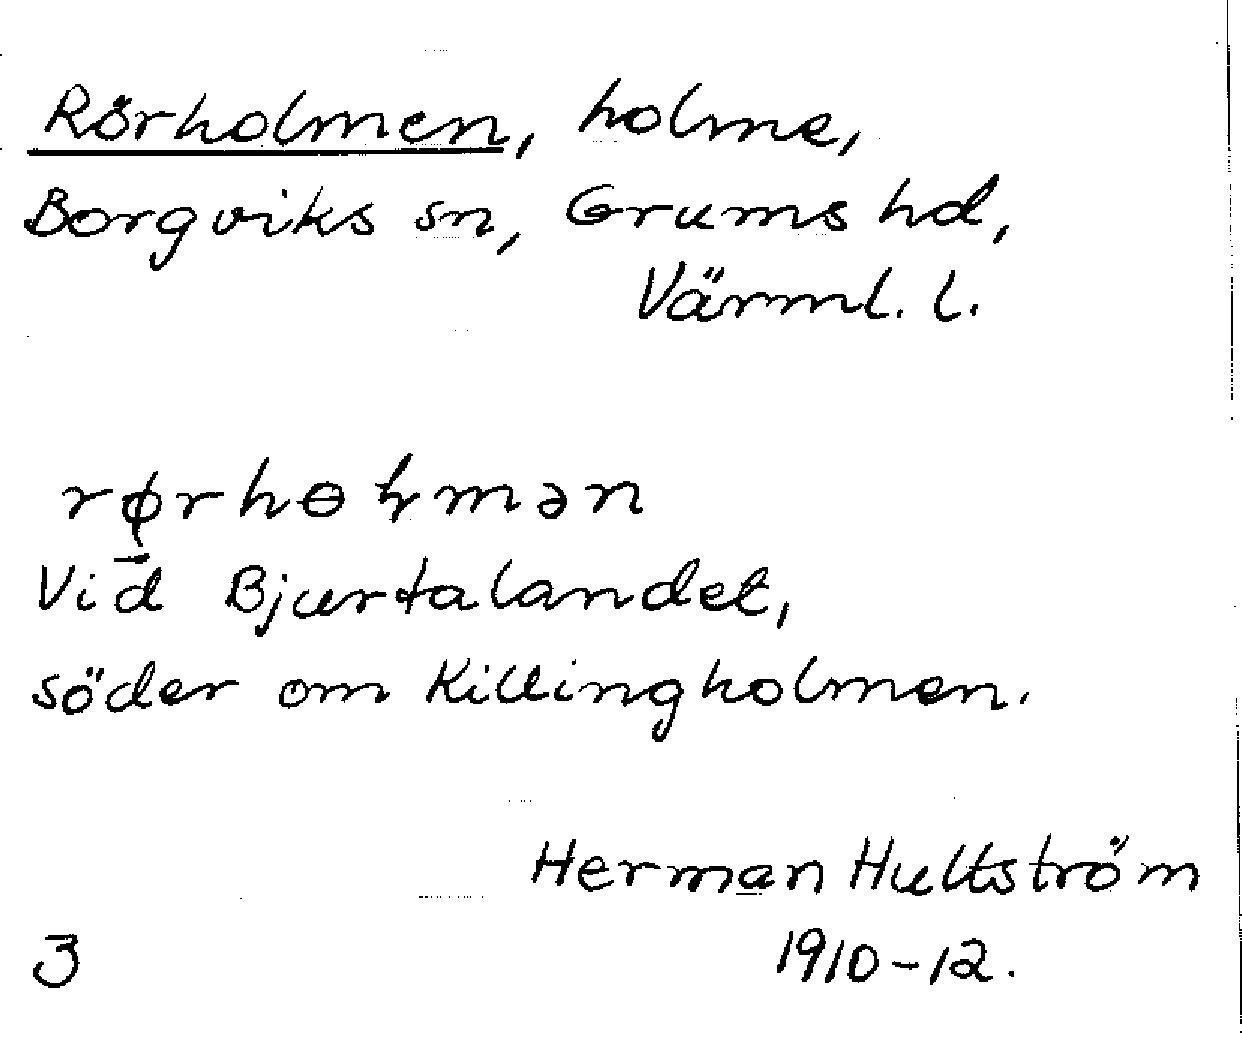 Rörholmen, holme,
Borgviks sn, Grums hd,
Värml. l.
rørhɵɫmən
Vid Bjurtalandet,
söder om Killingholmen.
Herman Hultström
1910-12.
3